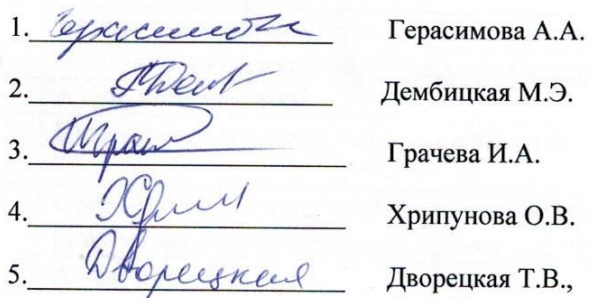 1. Герасимова Герасимова А.А.
2. Дембицкая М.Э.
3. Грачева И.А.
4. Хрипунова О.В.
5. Дворецкая Дворецкая Т.В.,